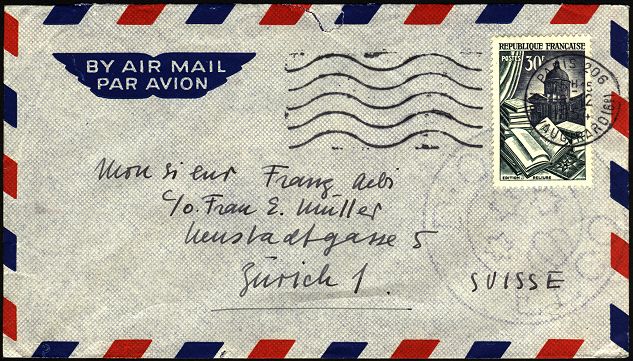 BY AIR MAIL
PAR AVION
REPUBLIQUE FRANÇAISE
POSTES 30F
PARIS 206
EDITION RELIURE
Monsieur Franz Aebi
c/o. Frau E. Müller
Neustadtgasse 5
Zürich 1.
SUISSE